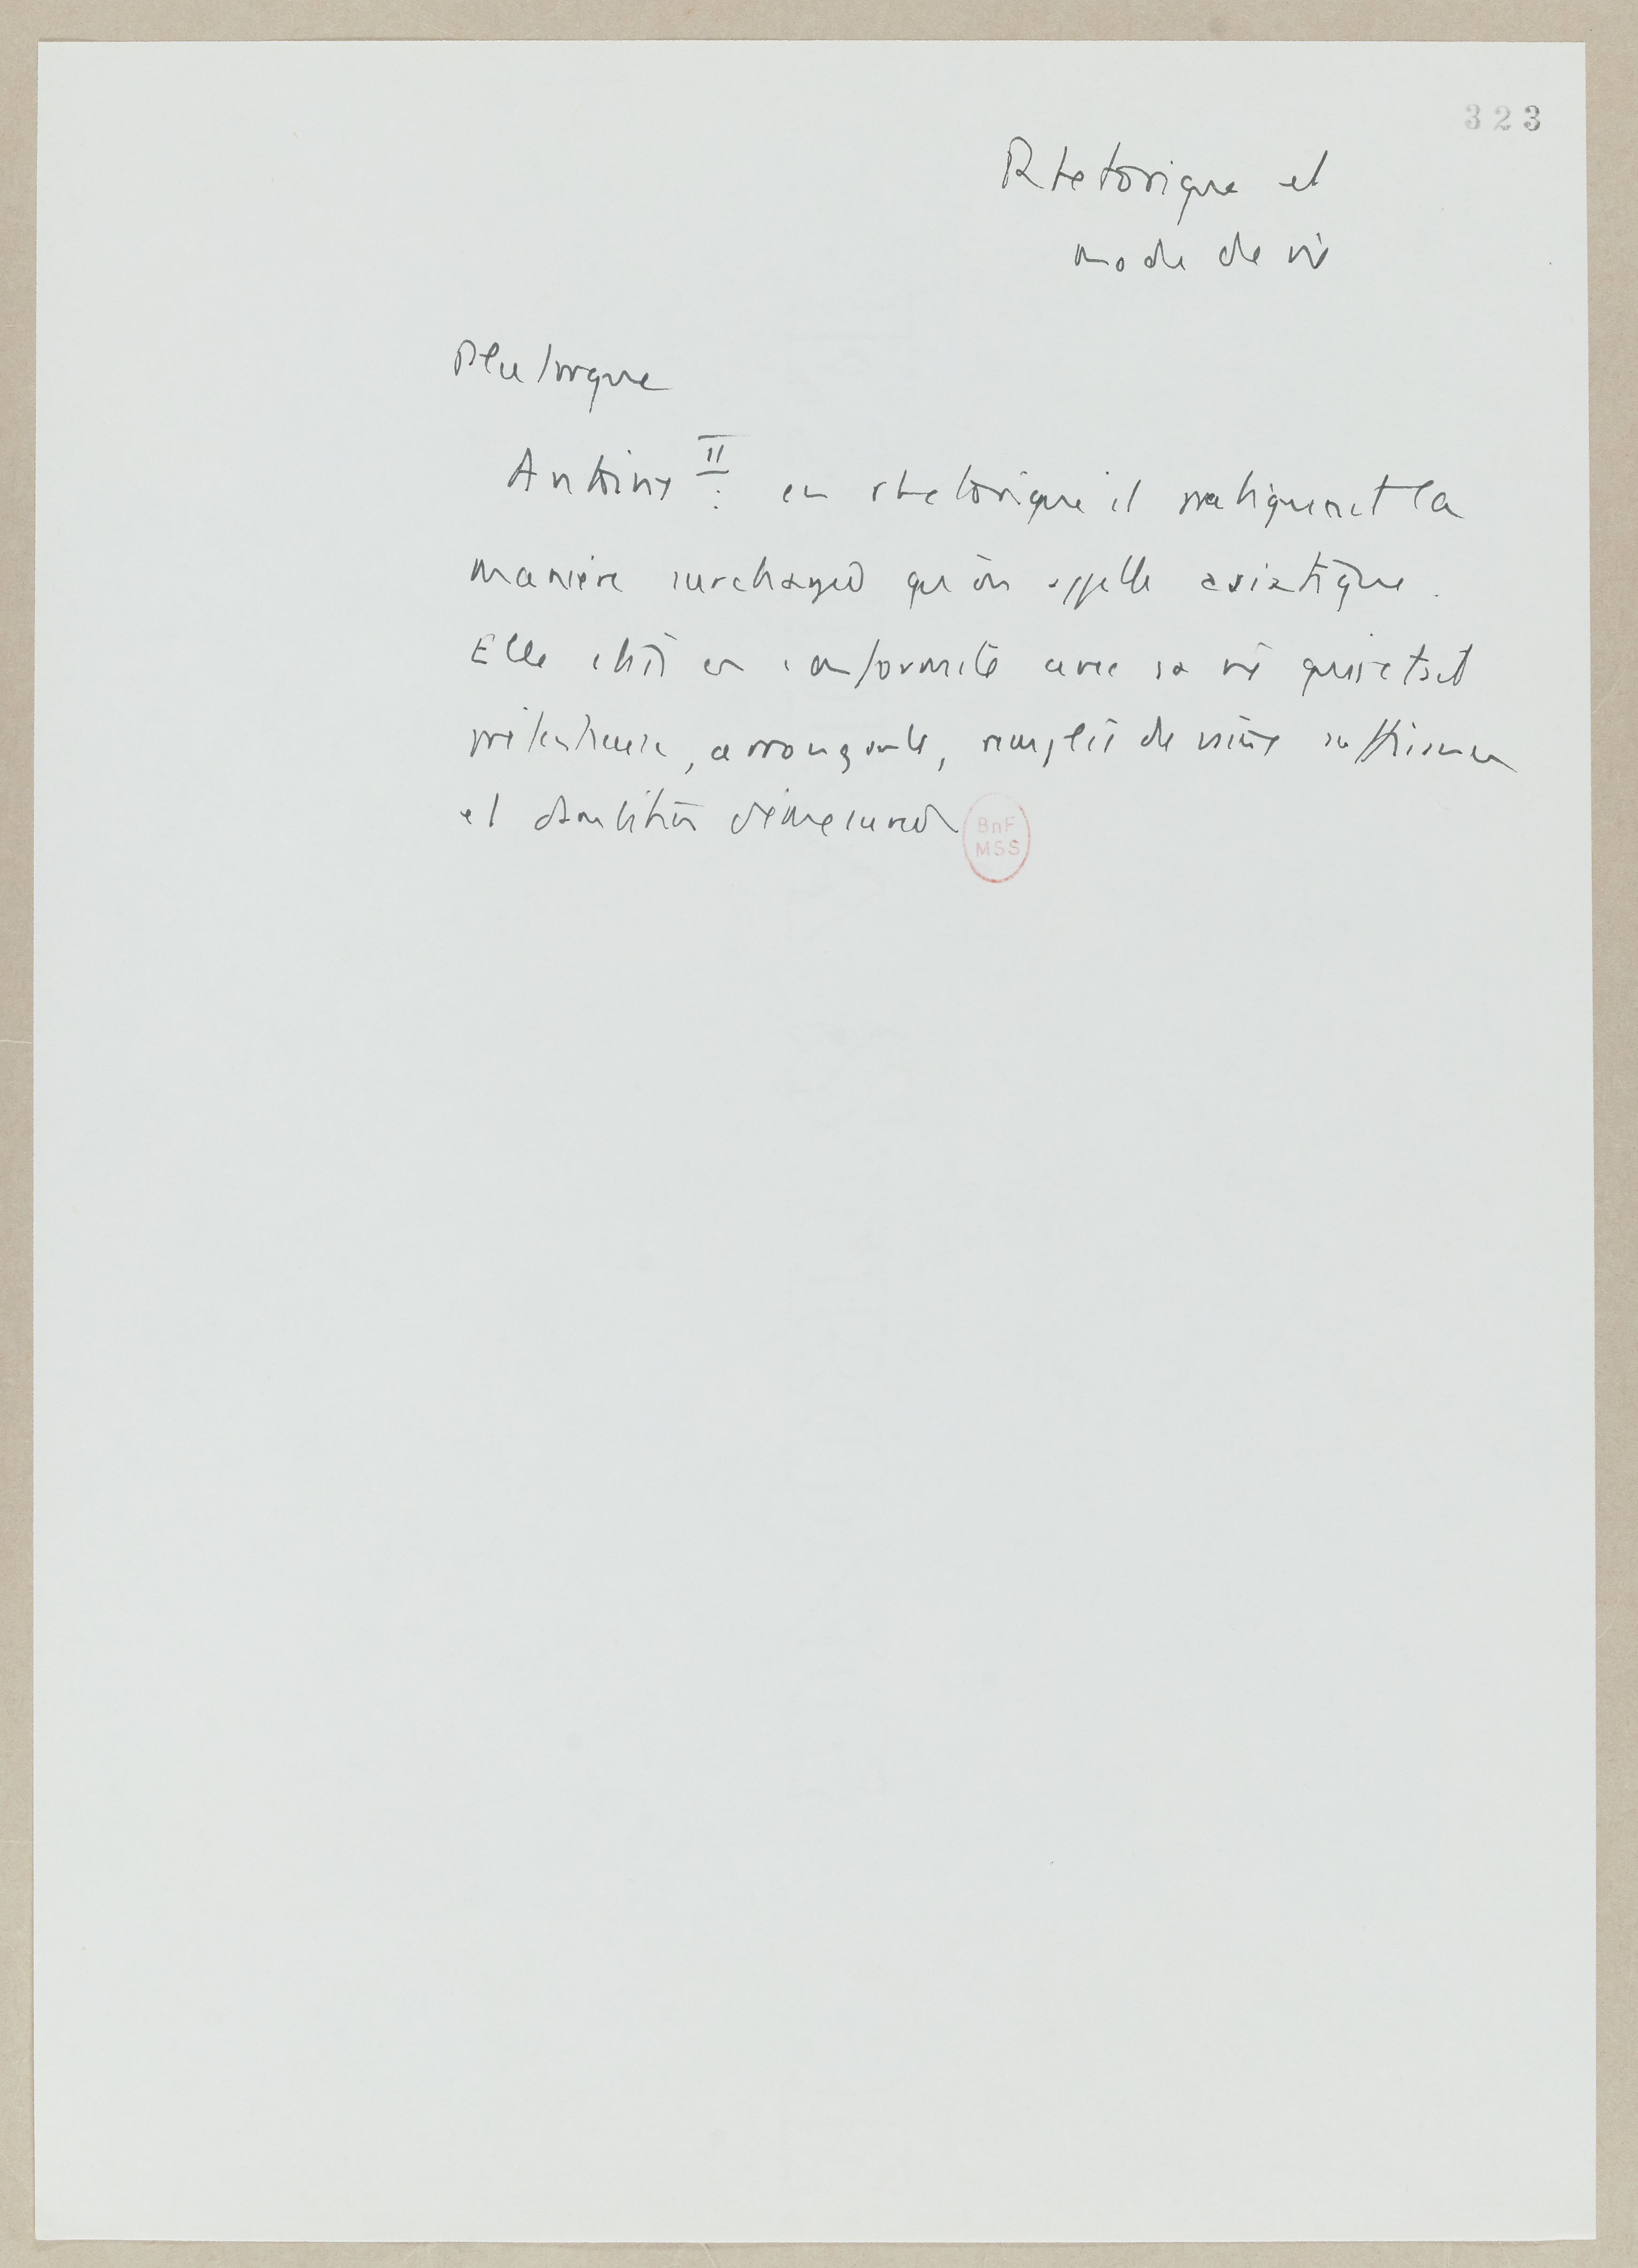 323
Rhetorique et
mode de vie
Plutarque
Antoine II : en rhetorique il pratiquait la
manière surchargée qu'on appelle asiatique.
Elle était en conformité avec sa vie qui était
prétentieuse, arrogante, remplie de vaine suffisance
et d'ambition démesurée
BnF
MSS